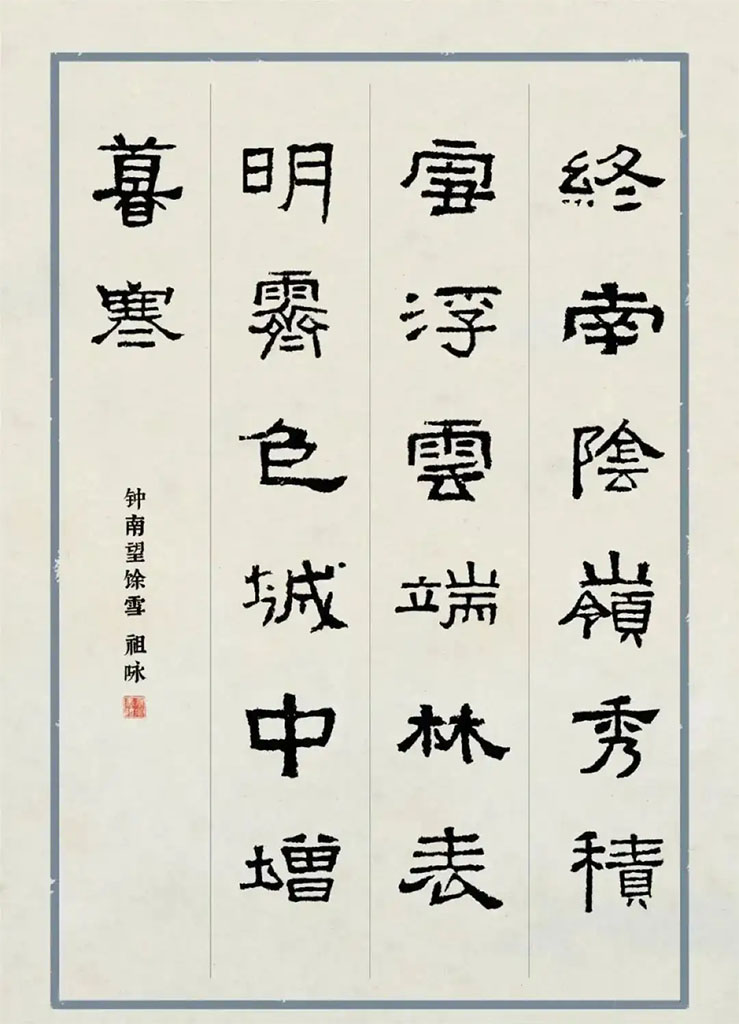 終南陰嶺秀積
雪浮雲端林表
明霽色城中增
暮寒
钟南望馀雪 祖咏